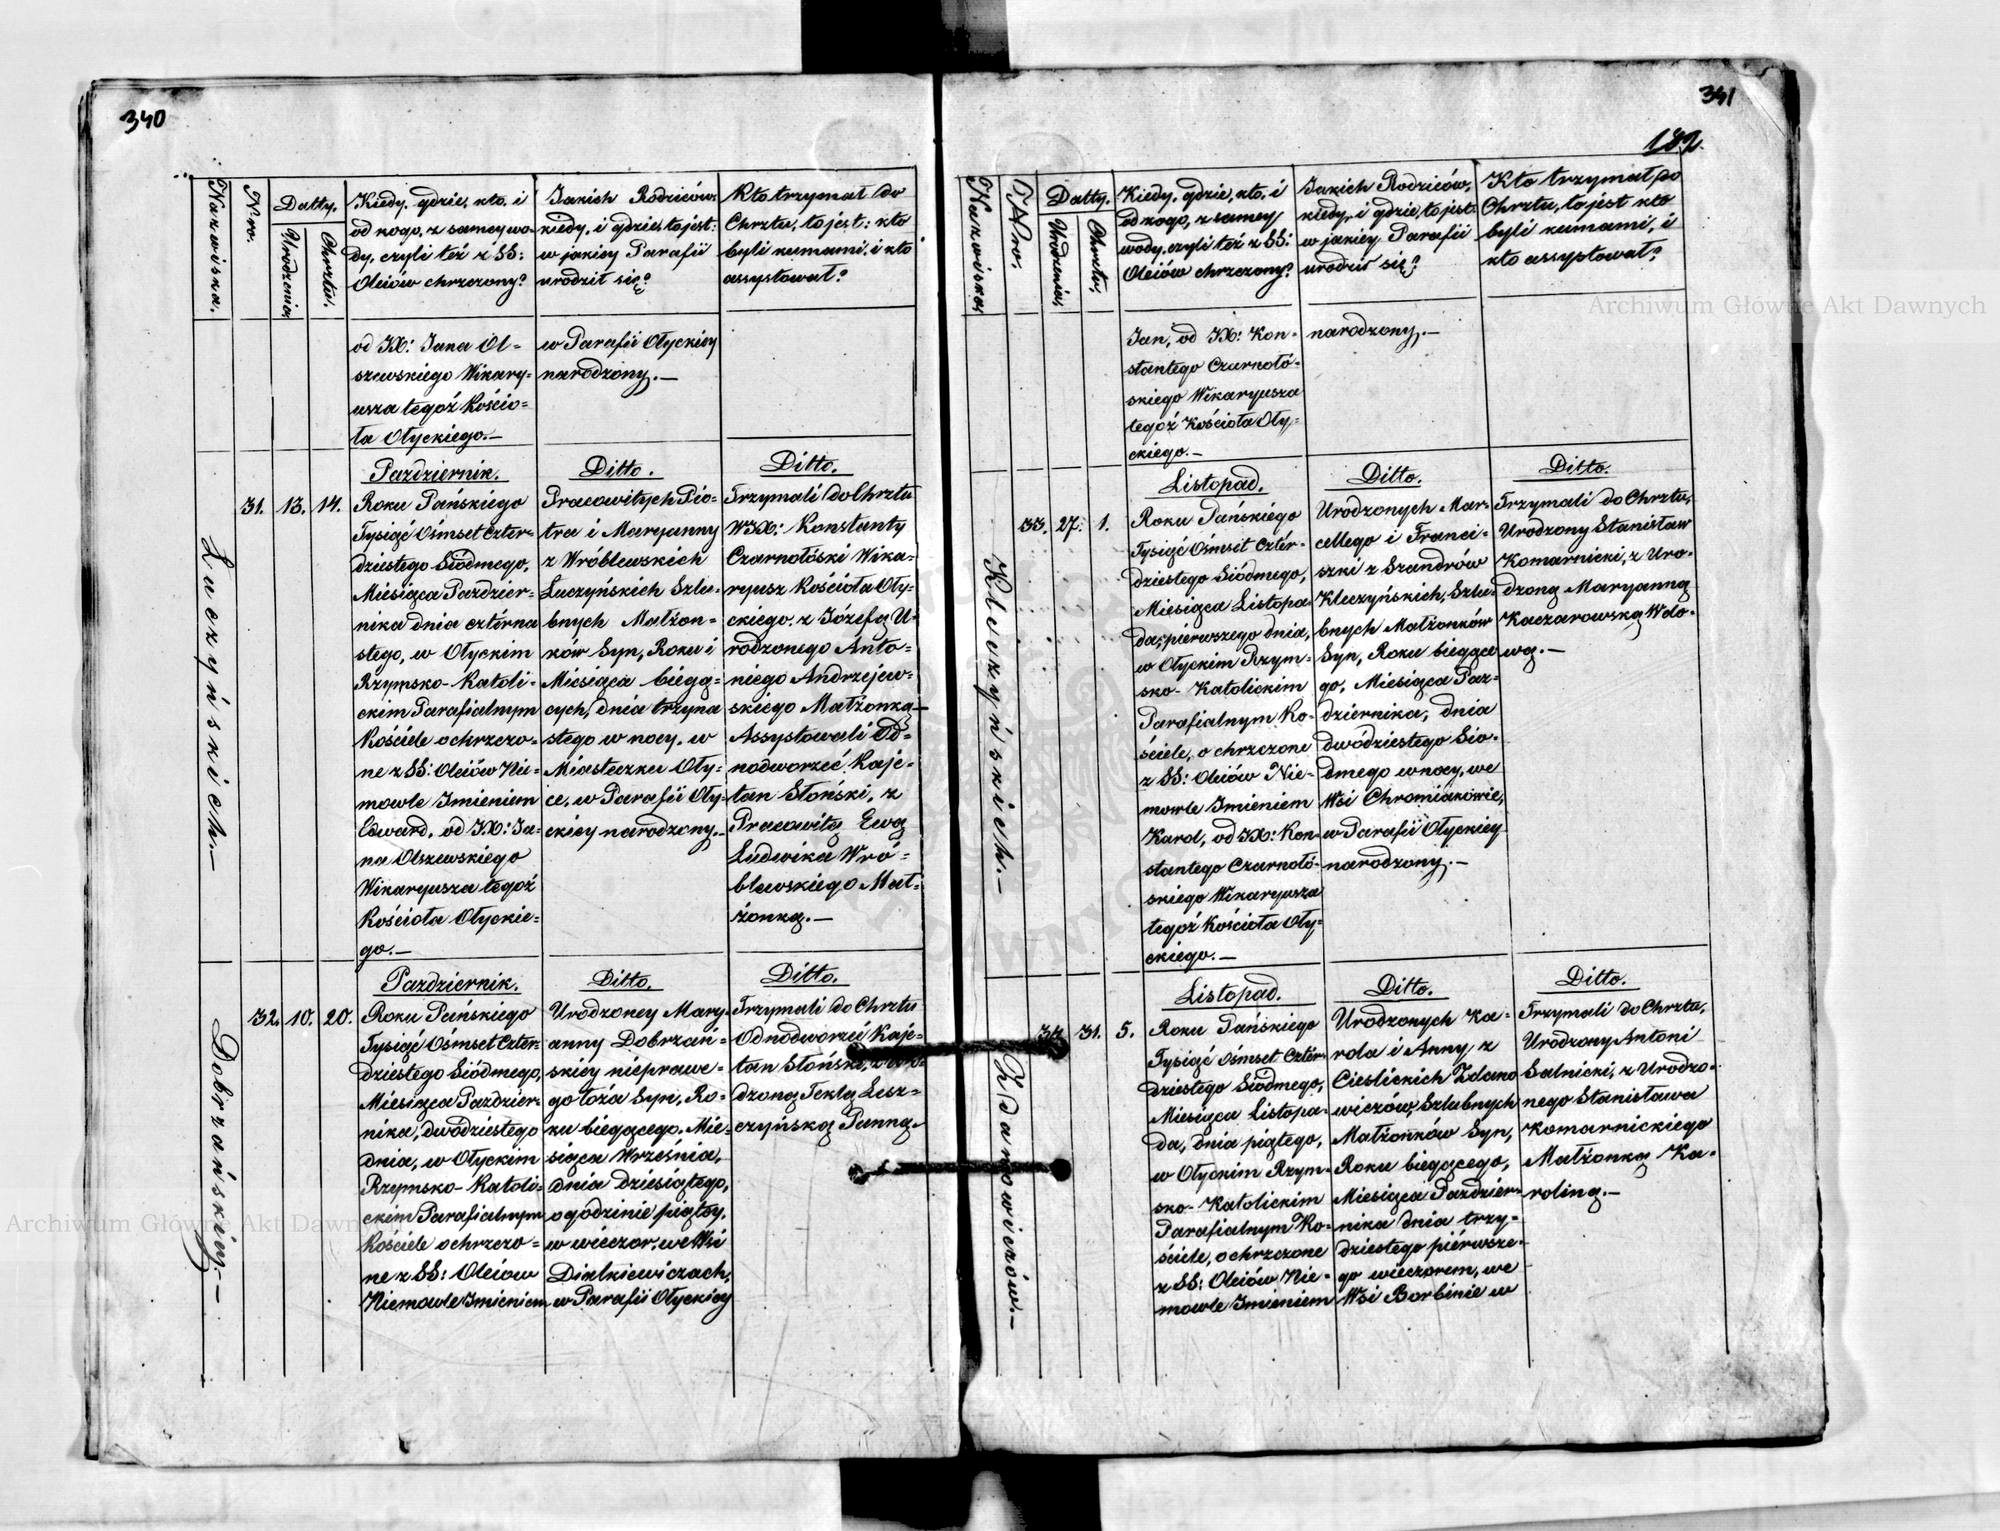 340
Nazwiska.
Nro.
Datty.
Urodzenia
Chrztu.
Kiedy, gdzie, kto, i
od kogo, z samey wo
dy, czyli też z SS:
Oleiów chrzczony?
Jakich Rodziców
kiedy, i gdzie to jest:
w jakiey Parafii
urodził się?
Kto trzymał do
Chrztu, to jest: kto
byli kumami, i kto
assystował?
od JX: Jana Ol=
szewskiego Wikary=
usza tegoż Kościo=
ła Ołyckiego.—
w Parafii Ołyckiey
narodzony.—
Łuczyńskich.—
31. 13. 14.
Pazdziernik.
Roku Pańskiego
Tysiąć Ośmset Czter=
dziestego Siódmego,
Miesiąca Pazdzier=
nika dnia cztérna
stego, w Ołyckim
Rzymsko-Katoli=
ckim Parafialnym
Kościele ochrzczo=
ne z SS: Oleiów Nie=
mowle Imieniem
Edward, od JX: Ja=
na Olszewskiego
Wikaryusza tegoż
Kościoła Ołyckie=
go.—
Ditto.
Pracowitych Pio=
tra i Maryanny
z Wróblewskich
Łuczyńskich Szlu=
bnych Małżon=
ków Syn, Roku i
Miesiąca biegą=
cych, dnia trzyna
stego w nocy, w
Miasteczku Oły=
ce, w Parafii Oły=
ckiey narodzony.—
Ditto.
Trzymali do Chrztu
WJX: Konstanty
Czarnołóski Wika=
ryusz Kościoła Oły=
ckiego, z Józefą U=
rodzonego Anto=
niego Andrzejew=
skiego Małżonką—
Assystowali Od=
nodworzeć Kaje=
tan Słoński, z
Pracowitą Ewą
Ludwika Wró=
blewskiego Mał=
żonką.—
Dobrzańskiey.—
32. 10. 20.
Pazdziernik.
Roku Pańskiego
Tysiąć Ośmset Czter=
dziestego Siódmego,
Miesiąca Pazdzier=
nika, dwudziestego
dnia, w Ołyckim
Rzymsko-Katoli=
ckim Parafialnym
Kościele ochrzczo=
ne z SS: Oleiów
Niemowle Imieniem
Ditto.
Urodzoney Mary
anny Dobrzań=
skiey nieprawe=
go łoża Syn, Ro=
ku biegącego, Mie=
siąca Września,
dnia dziesiątego,
o godzinie piątey,
w wieczor, we Wsi
Didkiewiczach,
w Parafii Ołyckiey
Ditto.
Trzymali do Chrztu
Odnodworzeć Kaje=
tan Słoński,
dzoną Teklą Lesz=
czyńską Panną.
341
182.
Nazwiska,
Nro.
Datty.
Urodzenia,
Chrztu,
Kiedy, gdzie, kto, i
od kogo, z samey
wody, czyli też z SS:
Oleiów chrzczony?
Jakich Rodziców,
kiedy, i gdzie, to jest:
w jakiey Parafii
urodził się?
Kto trzymał do
Chrztu, to jest kto
byli kumami, i
kto assystował?
Jan, od JX: Kon=
stantego Czarnołó=
skiego Wikaryusza
tegoż Kościoła Oły=
ckiego.—
narodzony.—
Kleczyńskich.—
33. 27. 1.
Listopad.
Roku Pańskiego
Tysiąć Ośmset Cztér=
dziestego Siódmego,
Miesiąca Listopa
da, pierwszego dnia,
w Ołyckim Rzym=
sko-Katolickim
Parafialnym Ko=
ściele, o chrzczone
z SS: Oleiów Nie=
mowle Imieniem
Karol, od JX: Kon=
stantego Czarnołó=
skiego Wikaryusza
tegoż Kościoła Oły=
ckiego.—
Ditto.
Urodzonych Mar=
cellego i Franci=
szki z Szandrów
Kleczyńskich, Szlu=
bnych Małżonków
Syn, Roku biegące
go, Miesiąca Paz=
dziernika, dnia
dwódziestego Sio=
dmego w nocy, we
Wsi Chromiakowie,
w Parafii Ołyckiey
narodzony.—
Ditto.
Trzymali do Chrztu,
Urodzony Stanisław
Komarnicki, z Uro=
dzoną Maryanną
Kaczarowską Wdo=
wą.—
Zdanowiczów.—
34. 31. 5.
Listopad.
Roku Pańskiego
Tysiąć Ośmset Cztér=
dziestego Siódmego,
Miesiąca Listopa=
da, dnia piątego,
w Ołyckim Rzym=
sko-Katolickim
Parafialnym Ko=
ściele, ochrzczone
z SS: Oleiów Nie=
mowle Imieniem
Ditto.
Urodzonych Ka=
rola i Anny z
Cieslickich Zdano
wiczów, Szlubnych
Małżonków Syn,
Roku biegącego,
Miesiąca Pazdzier=
nika dnia trzy=
dziestego piérwsze=
go wieczorem, we
Wsi Borbinie w
Ditto.
Trzymali do Chrztu,
Urodzony Antoni
Salnicki, z Urodzo=
nego Stanisława
Komarnickiego
Małżonką Ka=
roliną.—
Archiwum Główne Akt Dawnych
Archiwum Główne Akt Dawnych